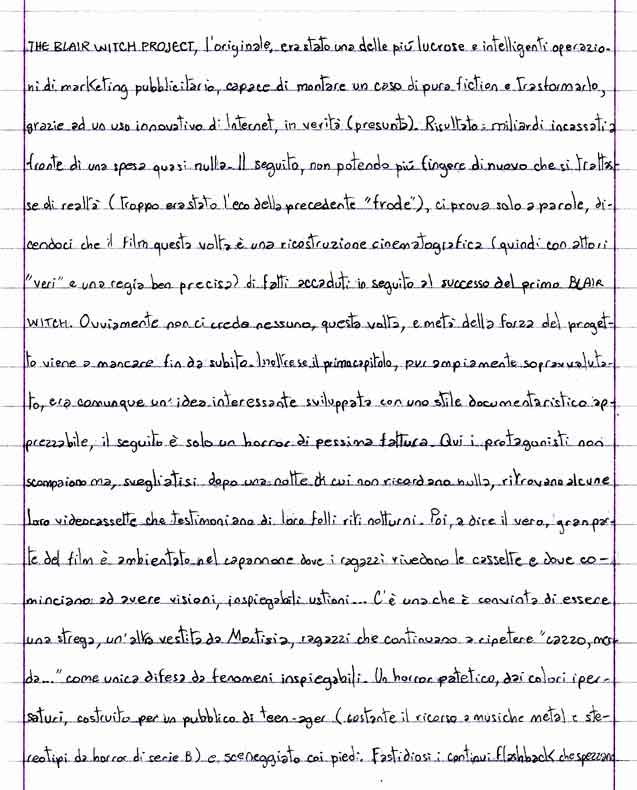 THE BLAIR WITCH PROJECT, l'originale, era stato una delle più lucrose e intelligenti operazio-
ni di marketing pubblicitario, capace di montare un caso di pura fiction e trasformarlo,
grazie ad un uso innovativo di Internet, in verità (presunta). Risultato: miliardi incassati a
fronte di una spesa quasi nulla. Il seguito, non potendo più fingere di nuovo che si trattas-
se di realtà (troppo era stato l'eco della precedente "frode"), ci prova solo a parole, di-
cendoci che il film questa volta è una ricostruzione cinematografica (quindi con attori
"veri" e una regia ben precisa) di fatti accaduti in seguito al successo del primo BLAIR
WITCH. Ovviamente non ci crede nessuno, questa volta, e metà della forza del proget-
to viene a mancare fin da subito. Inoltre se il primo capitolo, pur ampiamente sopravvaluta-
to, era comunque un'idea interessante sviluppata con uno stile documentaristico ap-
prezzabile, il seguito è solo un horror di pessima fattura. Qui i protagonisti non
scompaiono ma, svegliatisi dopo una notte di cui non ricordano nulla, ritrovano alcune
loro videocassette che testimoniano di loro folli riti notturni. Poi, a dire il vero, gran par-
te del film è ambientato nel capannone dove i ragazzi rivedono le cassette e dove co-
minciano ad avere visioni, inspiegabili ustioni... C'è una che è convinta di essere
una strega, un'altra vestita da Mortisia, ragazzi che continuano a ripetere "cazzo, mer-
da..." come unica difesa da fenomeni inspiegabili. Un horror patetico, dai colori iper-
saturi, costruito per un pubblico di teen-ager (costante il ricorso a musiche metal e ste-
reotipi da horror di serie B) e sceneggiato coi piedi. Fastidiosi i continui flashback che spezzano